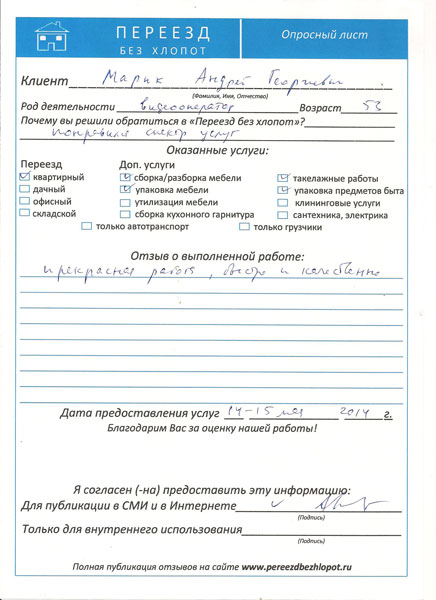 ПЕРЕЕЗД
БЕЗ ХЛОПОТ
Опросный лист
Клиент Марик Андрей Георгиевич
(Фамилия, Имя, Отчество)
Род деятельности видеооператор Возраст 53
Почему вы решили обратиться в «Переезд без хлопот»?
понравился спектр услуг
Оказанные услуги:
Переезд Доп. услуги
квартирный сборка/разборка мебели такелажные работы
дачный упаковка мебели упаковка предметов быта
офисный утилизация мебели клининговые услуги
складской сборка кухонного гарнитура сантехника, электрика
только автотранспорт только грузчики
Отзыв о выполненной работе:
прекрасная работа, быстро и качественно
Дата предоставления услуг 14-15 мая 2014 г.
Благодарим Вас за оценку нашей работы!
Я согласен (-на) предоставить эту информацию:
Для публикации в СМИ и в Интернете
(Подпись)
Только для внутреннего использования
(Подпись)
Полная публикация отзывов на сайте www.pereezdbezhlopot.ru